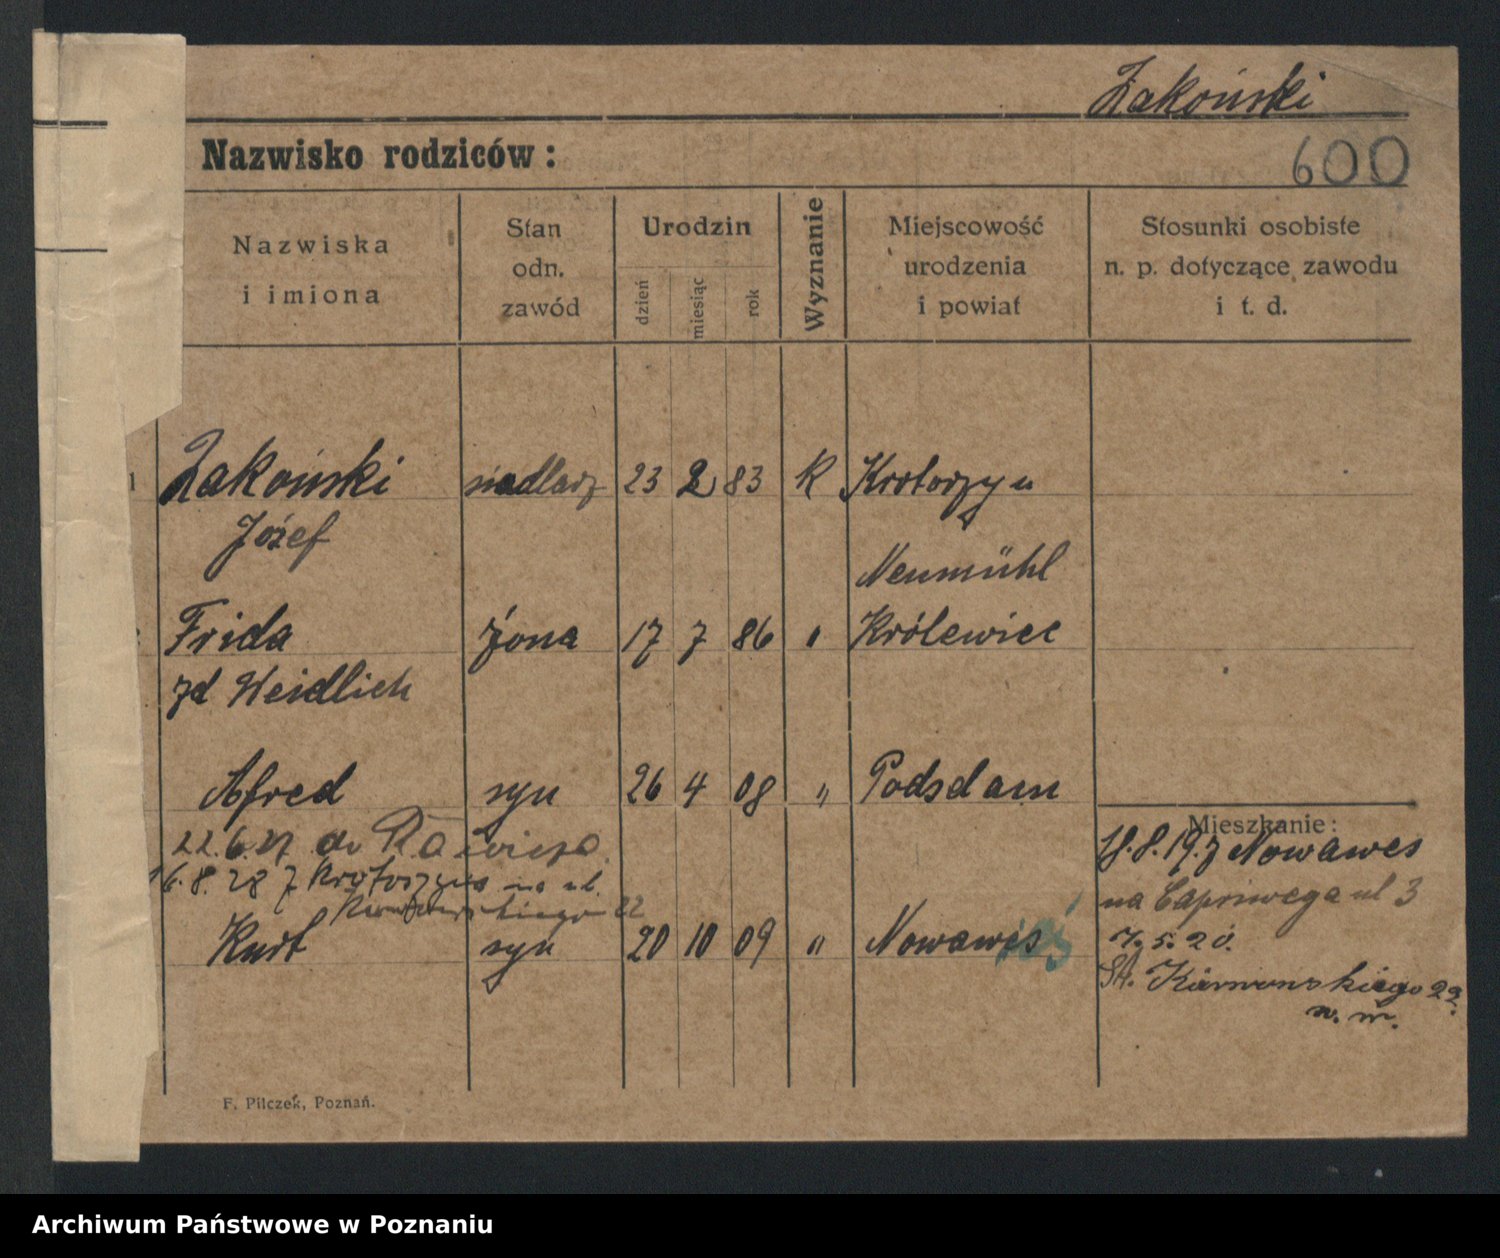 Żakoński
Nazwisko rodziców:
600
Nazwiska
i imiona
Stan
odn.
zawód
Urodzin
dzień
miesiąc
rok
Wyznanie
Miejscowość
urodzenia
i powiat
Stosunki osobiste
n. p. dotyczące zawodu
i t. d.
1 Żakoński siodlarz 23 2 83 K Krotoszyn
Józef
Neumühl
Frida żona 17 7 86 " Królewiec
zd Weidlich
Alfred syn 26 4 08 " Podsdam
22.6.27 do
16.8.28 z Krotoszyna na ul.
22
Kurt syn 20 10 09 " Nowawes
Mieszkanie:
18.8.19. z Nowawes
na ul 3
7.5.20.
St. Karwowskiego 22
F. Pilczek, Poznań.
Archiwum Państwowe w Poznaniu